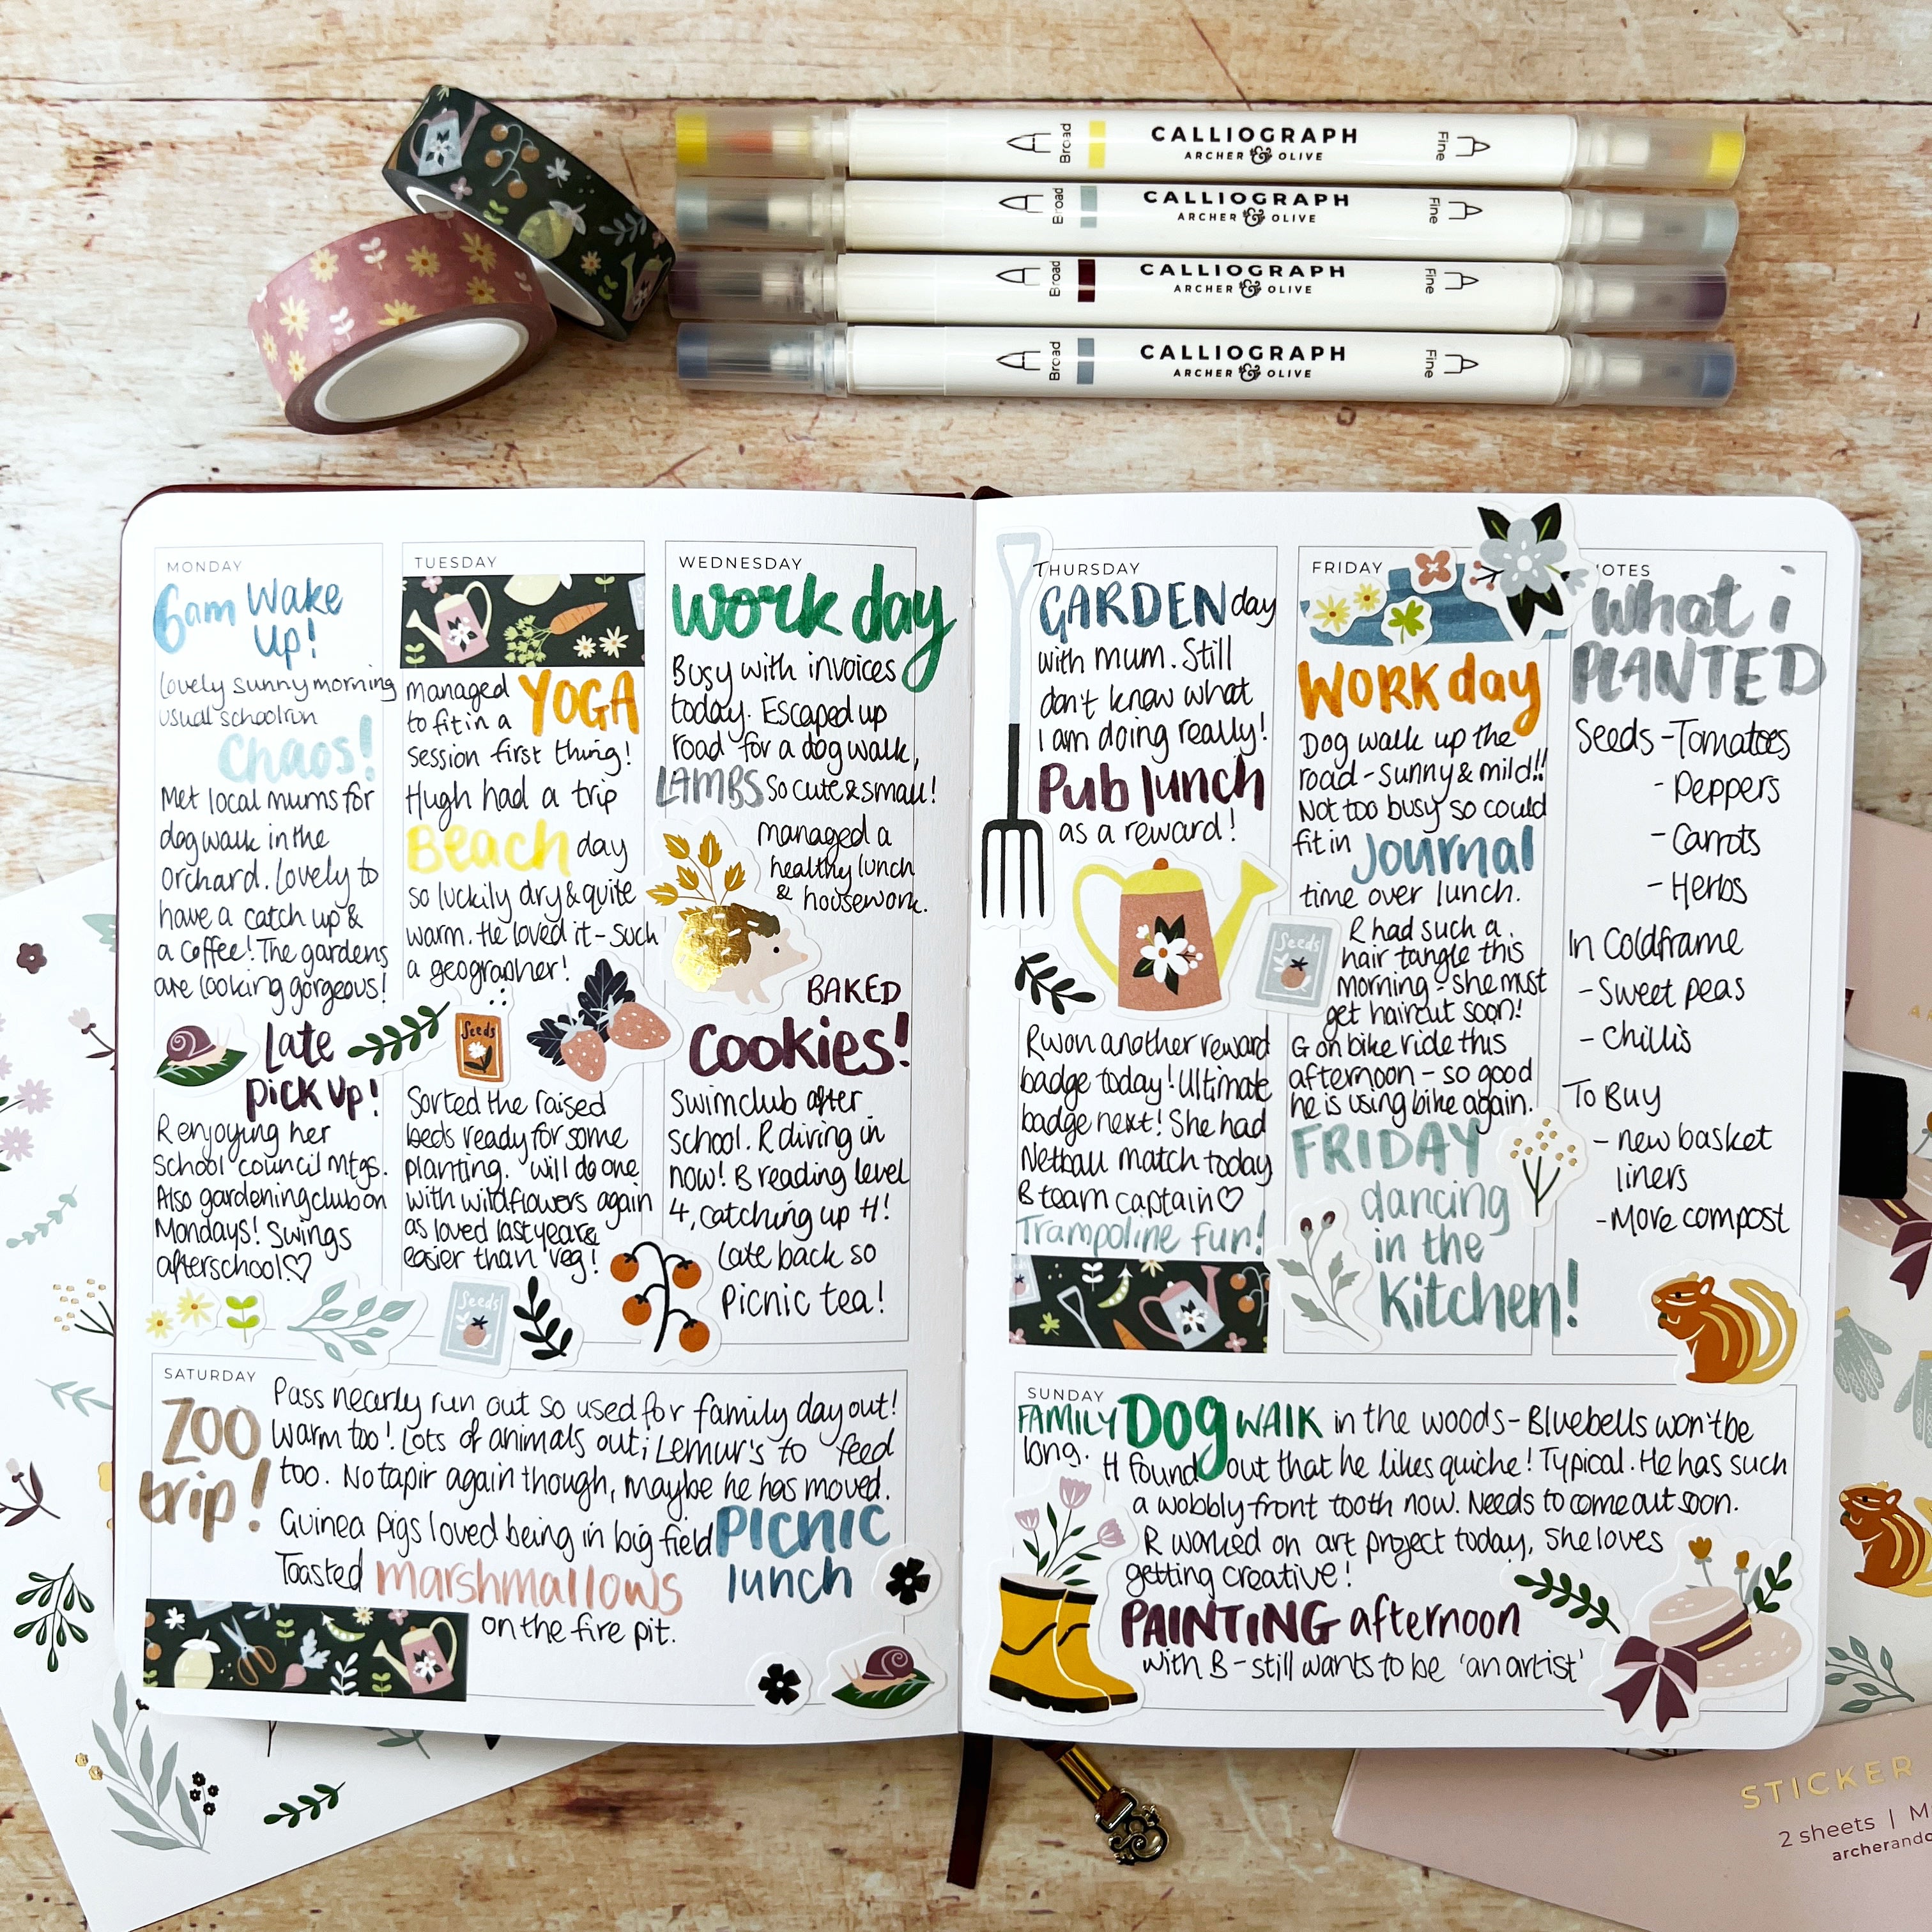 Broad CALLIOGRAPH Fine
ARCHER & OLIVE
Broad CALLIOGRAPH Fine
ARCHER & OLIVE
Broad CALLIOGRAPH Fine
ARCHER & OLIVE
Broad CALLIOGRAPH Fine
ARCHER & OLIVE
MONDAY
6am Wake
up!
lovely sunny morning
usual school run
Chaos!
Met local mums for
dog walk in the
orchard. Lovely to
have a catch up &
a coffee! The gardens
are looking gorgeous!
Late
pick up!
R enjoying her
school council mtgs.
Also gardening club on
Mondays! Swings
afterschool.♡
TUESDAY
managed YOGA
to fit in a
session first thing!
Hugh had a trip
Beach day
so luckily dry & quite
warm. He loved it - such
a geographer!
Seeds
Sorted the raised
beds ready for some
planting. Will do one
with wildflowers again
as loved last year &
easier than veg!
Seeds
WEDNESDAY
work day
Busy with invoices
today. Escaped up
road for a dog walk,
LAMBS So cute & small!
managed a
healthy lunch
& housework.
BAKED
Cookies!
Swimclub after
school. R diving in
now! B reading level
4, catching up H!
Late back so
picnic tea!
THURSDAY
GARDEN day
with mum. Still
don't know what
I am doing really!
Pub lunch
as a reward!
R won another reward
badge today! Ultimate
badge next! She had
Netball match today
B team captain♡
Trampoline fun!
FRIDAY
WORK day
Dog walk up the
road - sunny & mild!!
Not too busy so could
fit in Journal
time over lunch.
Seeds
R had such a
hair tangle this
morning - she must
get haircut soon!
G on bike ride this
afternoon - so good
he is using bike again.
FRIDAY
dancing
in the
Kitchen!
NOTES
What i
PLANTED
Seeds - Tomatoes
- Peppers
- Carrots
- Herbs
In Coldframe
- Sweet peas
- Chillis
To Buy
- new basket
liners
- More compost
SATURDAY
ZOO
trip!
Pass nearly run out so used for family day out!
Warm too! Lots of animals out; Lemur's to feed
too. No tapir again though, maybe he has moved.
Guinea pigs loved being in big field PICNIC
lunch
Toasted marshmallows
on the fire pit.
SUNDAY
FAMILY Dog WALK in the woods - Bluebells won't be
long. H found out that he likes quiche! Typical. He has such
a wobbly front tooth now. Needs to come out soon.
R worked on art project today, She loves
getting creative!
PAINTING afternoon
with B - still wants to be 'an artist'
STICKER
2 sheets |